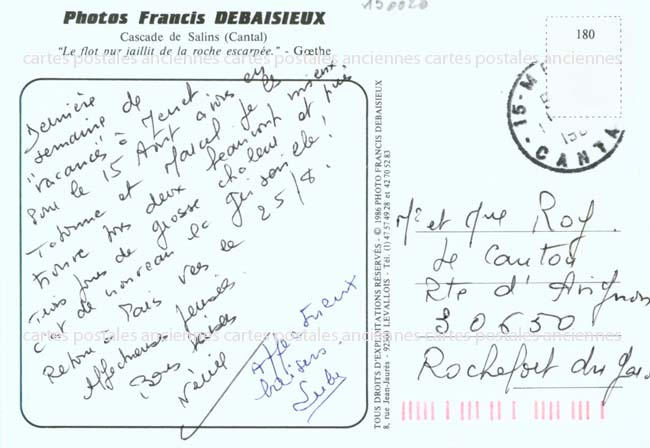 150020
Photos Francis DEBAISIEUX
Cascade de Salins (Cantal)
"Le flot pur jaillit de la roche escarpée." - Gœthe
180
15 - M
CANTA
cartes postales anciennes cartes postales anciennes cartes postales anciennes cartes postales anciennes
Dernière
semaine de
"vacances" à Menet en
Pour le 15 Août avons eu les
Totonne et Marcel je les
trouve tous deux beaucoup mieux.
Trois jours de grosse chaleur et puis
c'est de nouveau la grisaille !
Retour à Paris vers le 25/8.
Affectueuses pensées
Bons baisers
Affectueux
baisers.
TOUS DROITS D'EXPLOITATIONS RÉSERVÉS - © 1986 PHOTO FRANCIS DEBAISIEUX
8, rue Jean-Jaurès - 92300 LEVALLOIS - Tél. (1) 47 57 49 28 et 42 70 52 83
Mr et Mme Roy
Le Cantou
Rte d'Avignon
30650
Rochefort du Gard
cartes postales anciennes cartes postales anciennes cartes postales anciennes cartes postales anciennes